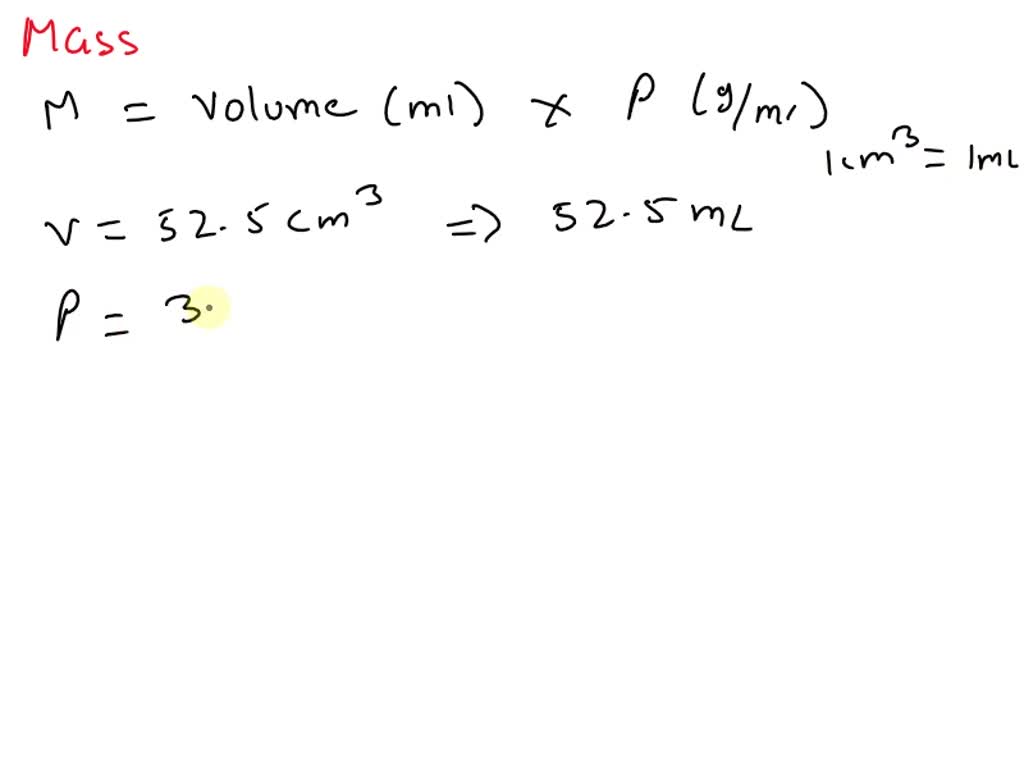 Mass
M = volume (ml) × ρ (g/ml)
1cm³ = 1mL
v = 52.5 cm³ => 52.5 mL
ρ = 3.